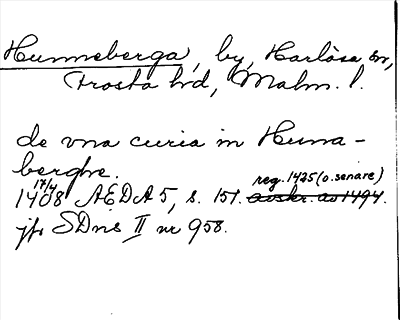 Hunneberga, by, Harlösa sn,
Frosta hd, Malm. l.
de vna curia in Hunna-
berghe.
17/4 1408 AEDA 5, s. 151. reg. 1425 (o. senare) avskr. av 1494.
jfr SDns II nr 958.